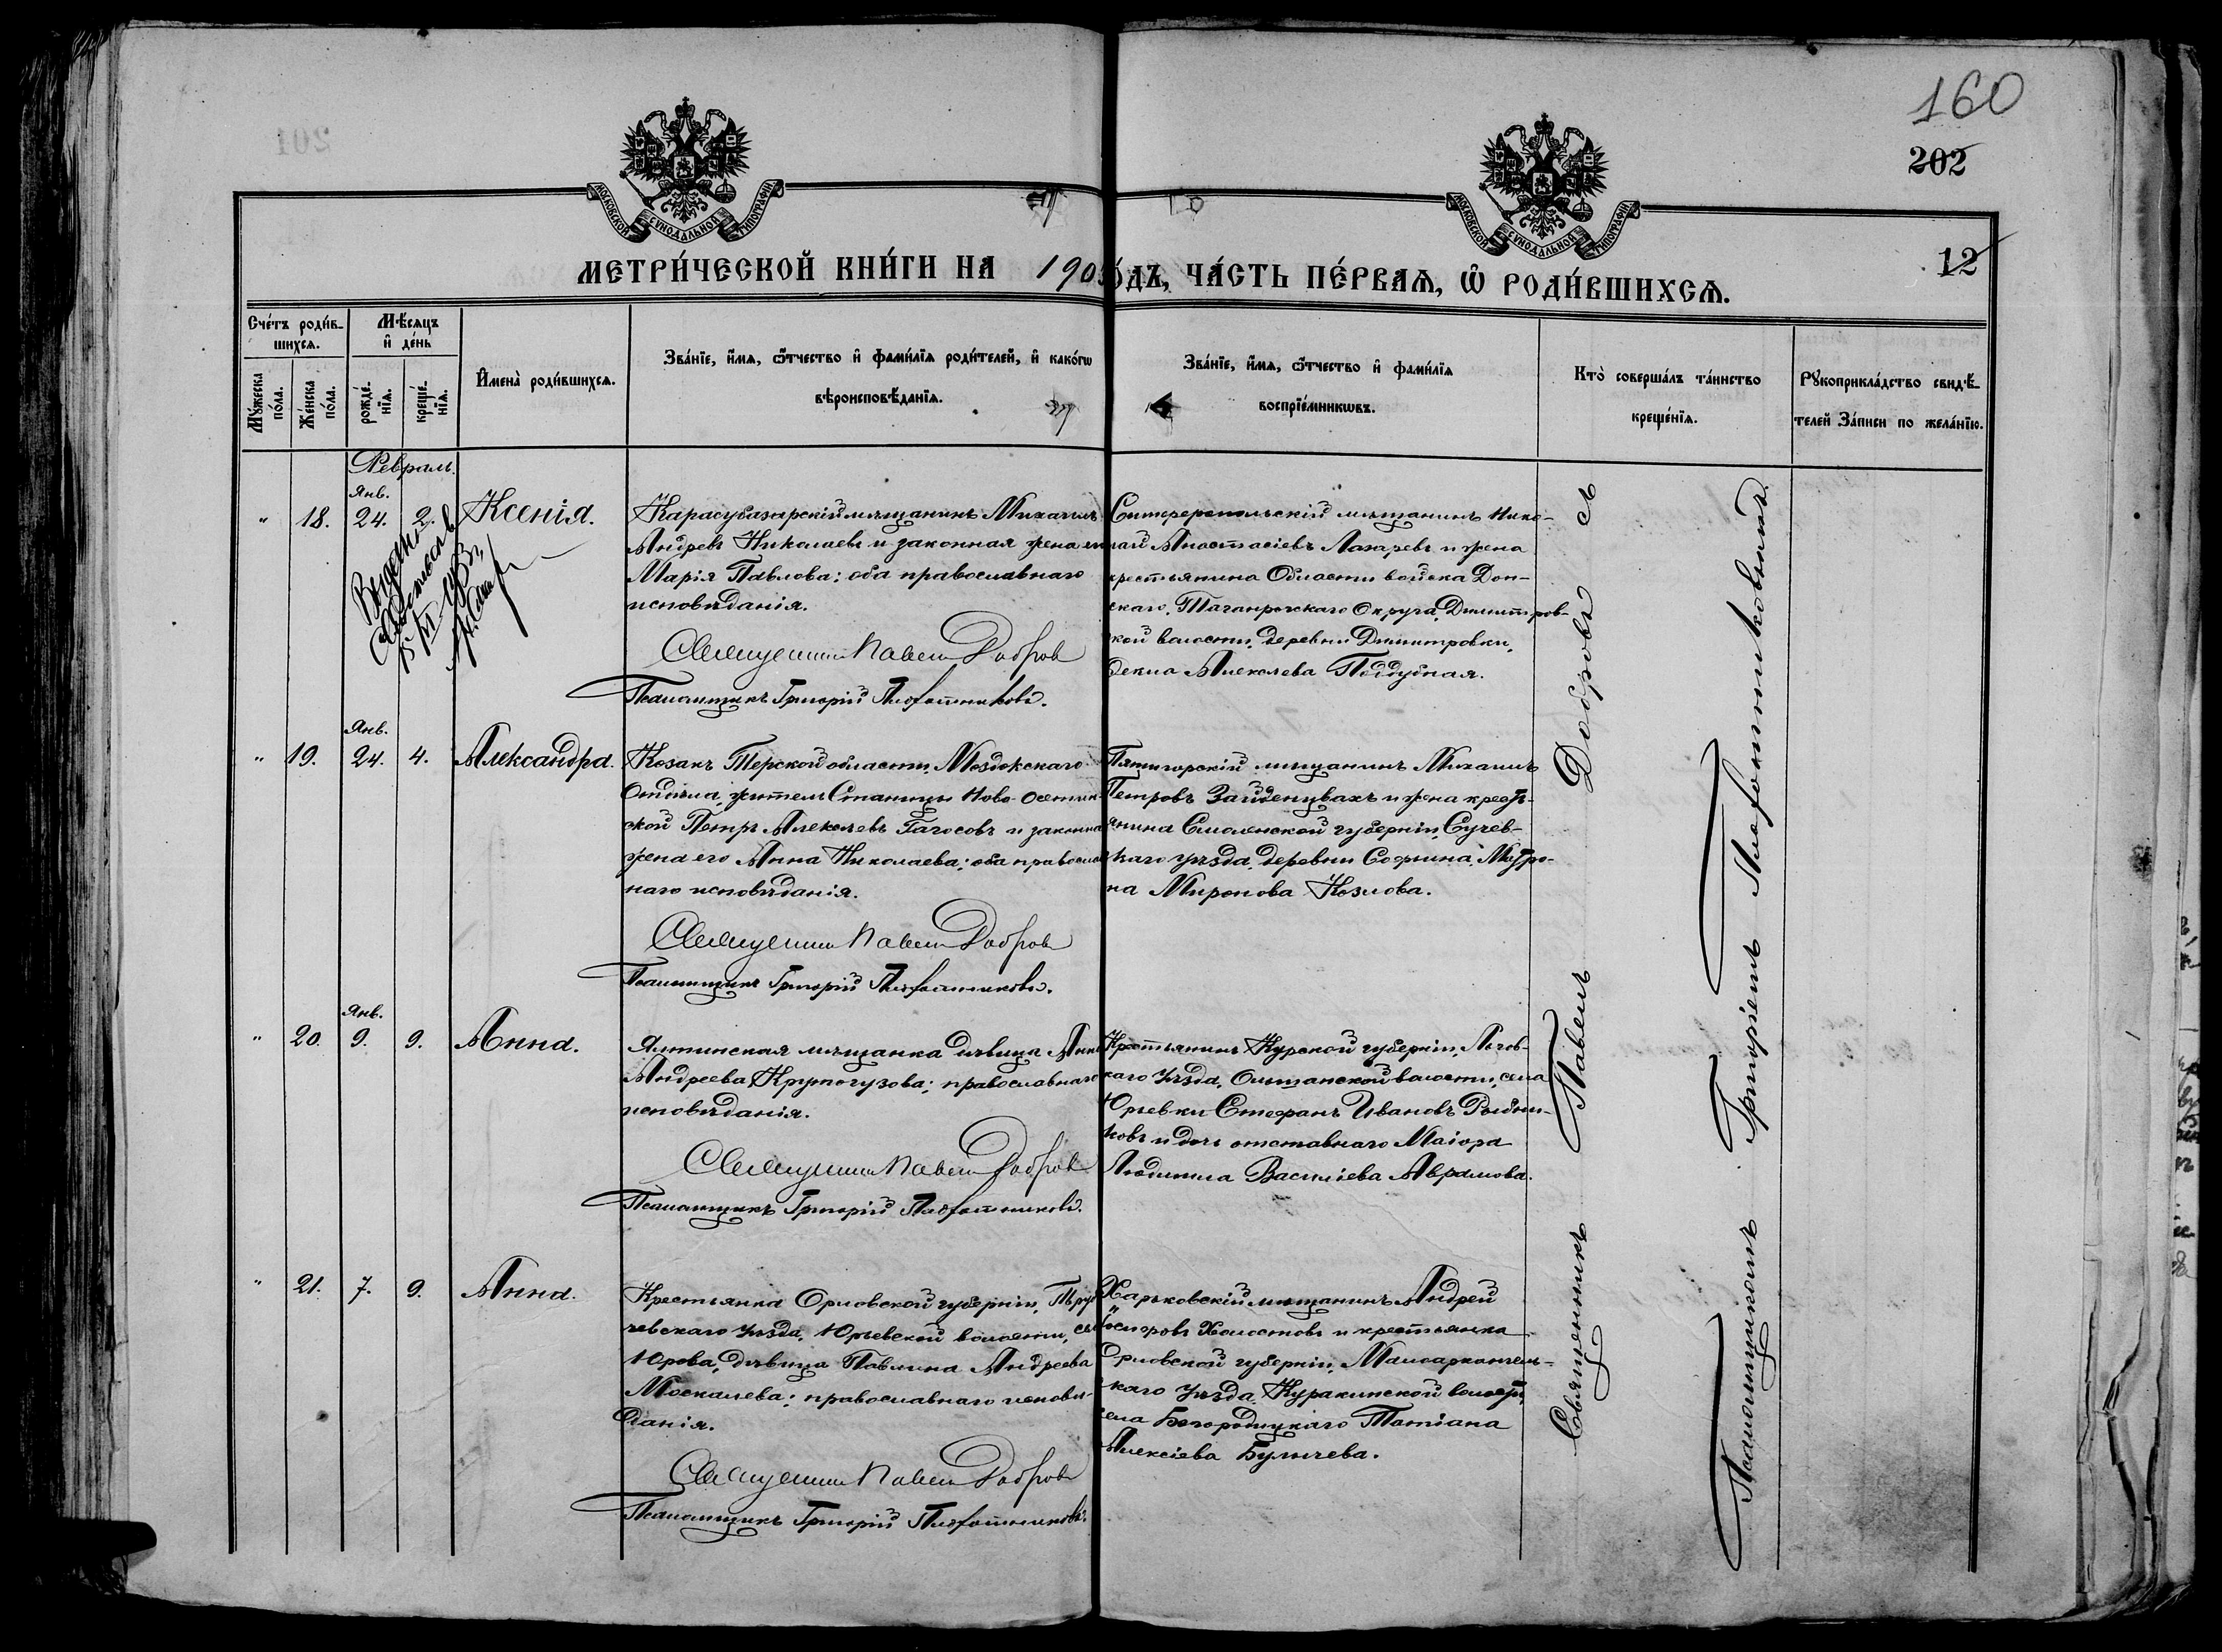 160
202
12
МЕТРИ́ЧЕСКОЙ КНИ́ГИ НА 190
О́ДЪ, ЧА́СТЬ ПЕ́РВАѦ, Ѡ РОДИ́ВШИХСѦ.
МОСКОВСКОЙ СѴНОДАЛЬНОЙ ТИПОГРАФІИ
МОСКОВСКОЙ СѴНОДАЛЬНОЙ ТИПОГРАФІИ
Сче́тъ роди́в-
шихсѧ.
Мꙋ́жеска
по́ла.
Же́нска
по́ла.
Мѣ́сѧцъ
и҆ де́нь
рожде́-
нїѧ.
креще́-
нїѧ.
И҆мена̀ роди́вшихсѧ.
Зва́нїе, и҆́мѧ, ѻ҆́тчество и҆ фами́лїѧ роди́телей, и҆ како́гѡ
вѣроисповѣ́данїѧ.
Зва́нїе, и҆́мѧ, ѻ҆́тчество и҆ фами́лїѧ
воспрїе́мникѡвъ.
Кто̀ соверша́лъ та́инство
креще́нїѧ.
Рꙋкоприкла́дство свидѣ́-
телей За́писи по жела́нїю.
Февраль.
Янв.
" 18. 24. 2. Ксенія.
Карасубазарскій мѣщанинъ Михаилъ
Андреевъ Николаевъ и законная жена
Марія Павлова; оба православнаго
исповѣданія.
Священникъ Павелъ Добровъ
Псаломщикъ Григорій Плохотниковъ.
Симферопольскій мѣщанинъ Нико-
лай Анастасіевъ Лазаревъ и жена
крестьянина Области войска Дон-
скаго, Таганрогскаго Округа, Димитров-
ской волости, деревни Димитровки,
Фекла Алексѣева Поддубная.
Янв.
" 19. 24. 4. Александра.
Козакъ Терской области, Моздокскаго
Отдѣла, житель Станицы Ново-Осетин-
ской Петръ Алексѣевъ Гагосовъ и законна
жена его Анна Николаева; оба правосла
наго исповѣданія.
Священникъ Павелъ Добровъ
Псаломщикъ Григорій Плохотниковъ.
Пятигорскій мѣщанинъ Михаилъ
Петровъ и жена кресть-
янина Смоленской губерніи, Сычев-
скаго уѣзда, деревни Софьина, Матро-
на Миронова Козлова.
Янв.
" 20. 9. 9. Анна.
Ялтинская мѣщанка дѣвица Анна
Андреева Круногузова; православнаго
исповѣданія.
Священникъ Павелъ Добровъ
Псаломщикъ Григорій Плохотниковъ.
Крестьянинъ Курской губерніи, Льгов-
скаго уѣзда, Ольшанской волости, села
Юрьевки Стефанъ Ивановъ
и дочь отставнаго Маіора
Людмила Василіева Аврамова.
" 21. 7. 9. Анна.
Крестьянка Орловской губерніи, Труб
чевскаго уѣзда, Юрьевской волости, сел
Юрова, дѣвица Павлина Андреева
Москалева; православнаго исповѣ-
данія.
Священникъ Павелъ Добровъ
Псаломщикъ Григорій Плохотниковъ.
Харьковскій мѣщанинъ Андрей
Холостовъ и крестьянка
Орловской губерніи, Малоархангель-
скаго уѣзда, Куракинской волости,
села Богородицкаго Татіана
Алексіева Булычева.
Священникъ Павелъ Добровъ съ
Псаломщикомъ Григоріемъ Плохотниковымъ.